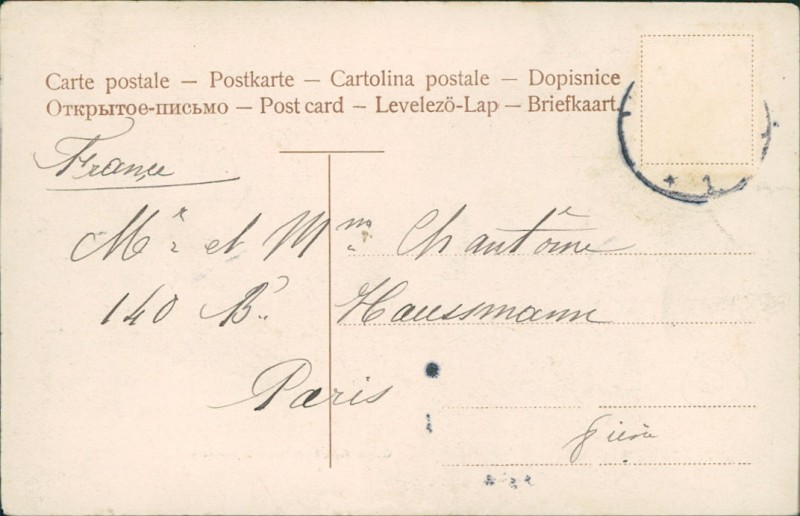 Carte postale — Postkarte — Cartolina postale — Dopisnice
Открытое-письмо — Post card — Levelezö-Lap — Briefkaart.
France
Mr et Mme Chantôme
140 Bd. Haussmann
Paris